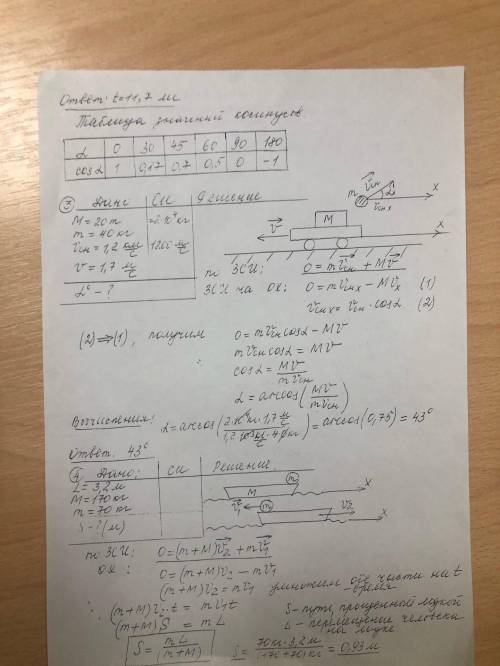 Ответ: t=11,7 мм
Таблица значений косинусов
α 0 30 45 60 90 180
cosα 1 0,17 0,7 0,5 0 -1
③ Дано СИ Решение
M = 20т =2·10⁴кг
m = 40 кг
vсн = 1,2 км/с 1200 м/с
v = 1,7 м/с
α° - ?
m vсн α vсн x x
v M x
m ЗСИ: 0 = mvсн + Mv
ЗСИ на ox: 0 = mvсн x - Mvx (1)
vсн x = vсн · cosα (2)
(2)⇒(1), получим 0 = mvсн cosα - Mv
mvсн cosα = Mv
cosα = Mv/mvсн
α = arccos(Mv/mvсн)
Вычисления: α = arccos(2·10⁴кг·1,7 м/с / 1,2·10³ м/с · 40кг) = arccos(0,75) = 43°
Ответ. 43°
④ Дано: СИ Решение
L = 3,2 м
M = 170 кг
m = 70 кг
S - ? (м)
m M x
v₁ m v₂ x
m ЗСИ: 0 = (m+M)v₂ + mv₁
ox: 0 = (m+M)v₂ - mv₁
(m+M)v₂ = mv₁ умножим обе части на t
- время
∴ (m+M)v₂·t = mv₁t S - путь, пройденный лодкой
(m+M)S = mL L - перемещение человека
на лодке
S = mL/(m+M) S = 70кг·3,2м/(170+70)кг = 0,93 м